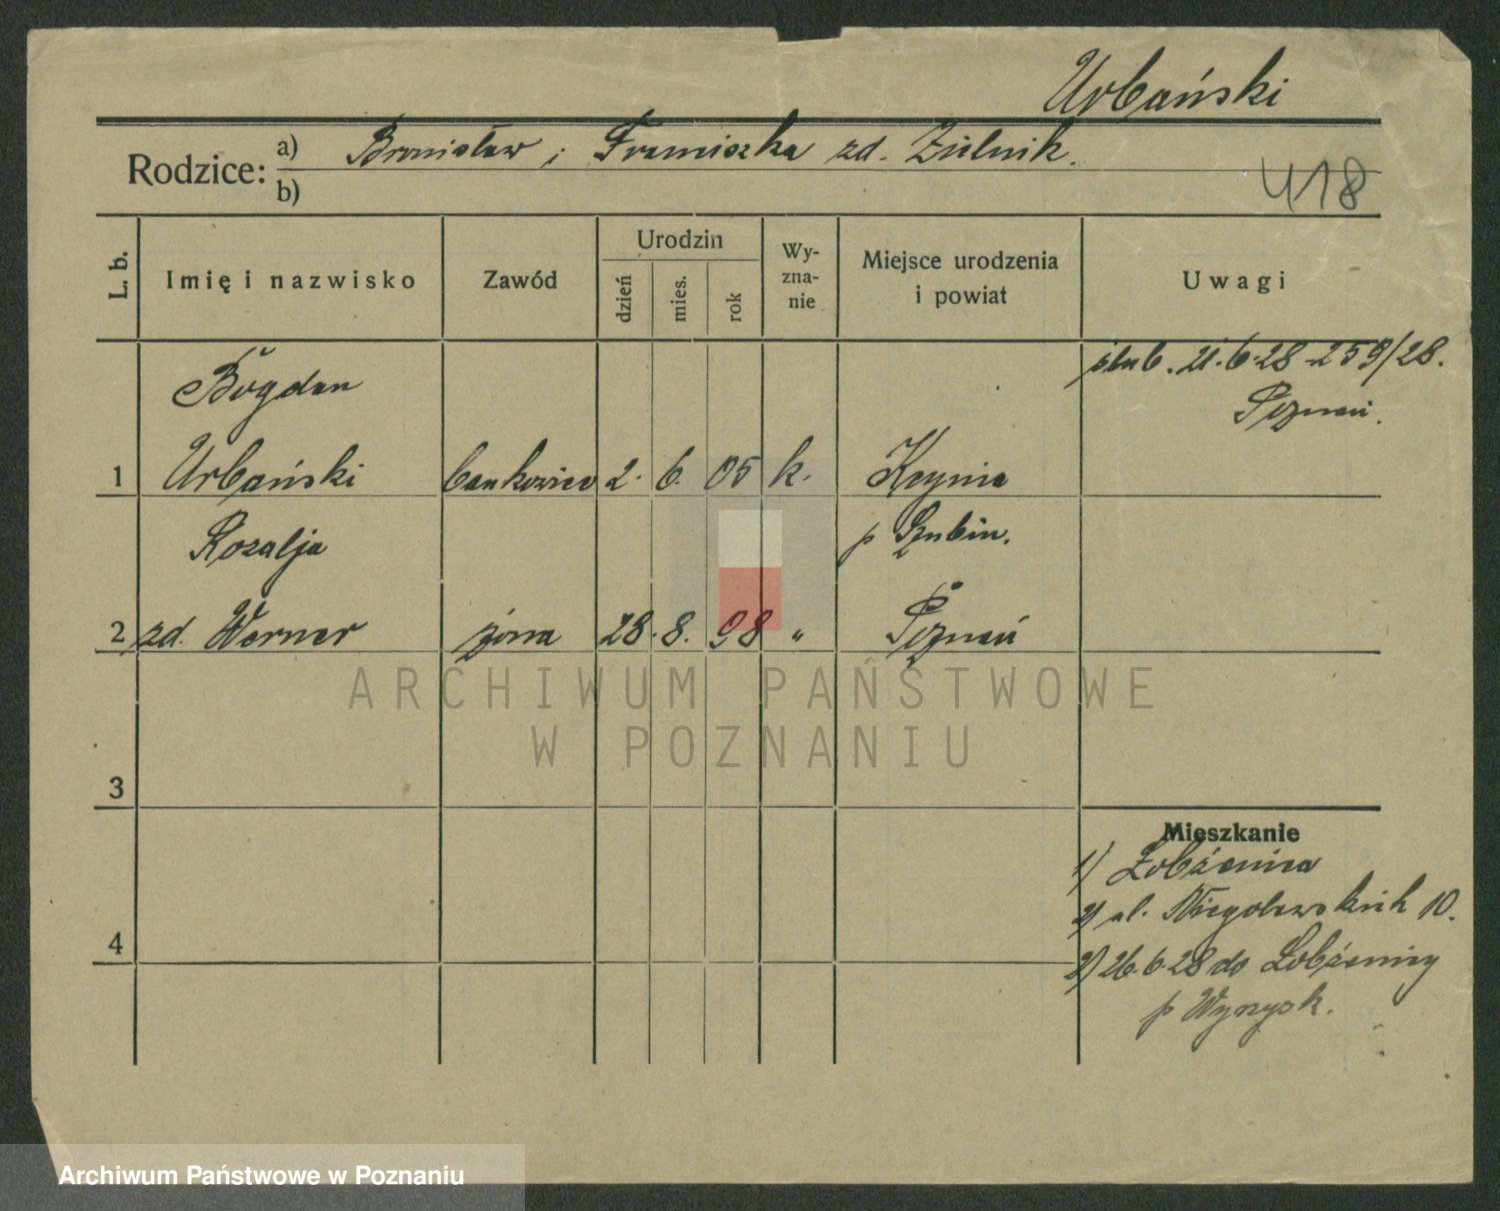 Urbański
Rodzice: a) Bronisław i Franciszka zd. Zielnik.
b)
418
L. b.
Imię i nazwisko
Zawód
Urodzin
dzień
mies.
rok
Wy-
zna-
nie
Miejsce urodzenia
i powiat
Uwagi
ślub. 21.6.28 - 259/28.
Poznań.
Bogdan
1 Urbański bankowiec 2. 6. 05 k. Kcynia
Rozalja p Szubin.
2 zd. Werner żona 28. 8. 98 " Poznań
ARCHIWUM PAŃSTWOWE
W POZNANIU
3
Mieszkanie
1) Łobżenica
2) ul. Niegolewskich 10.
4
3) 26.6.28 do Łobżenicy
p Wyrzysk.
Archiwum Państwowe w Poznaniu